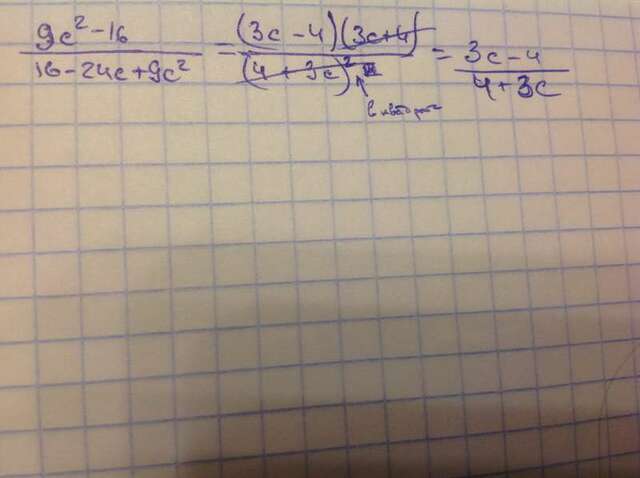 9c² - 16 / 16 - 24c + 9c² = (3c - 4)(3c + 4) / (4 + 3c)² = 3c - 4 / 4 + 3c
в квадрат